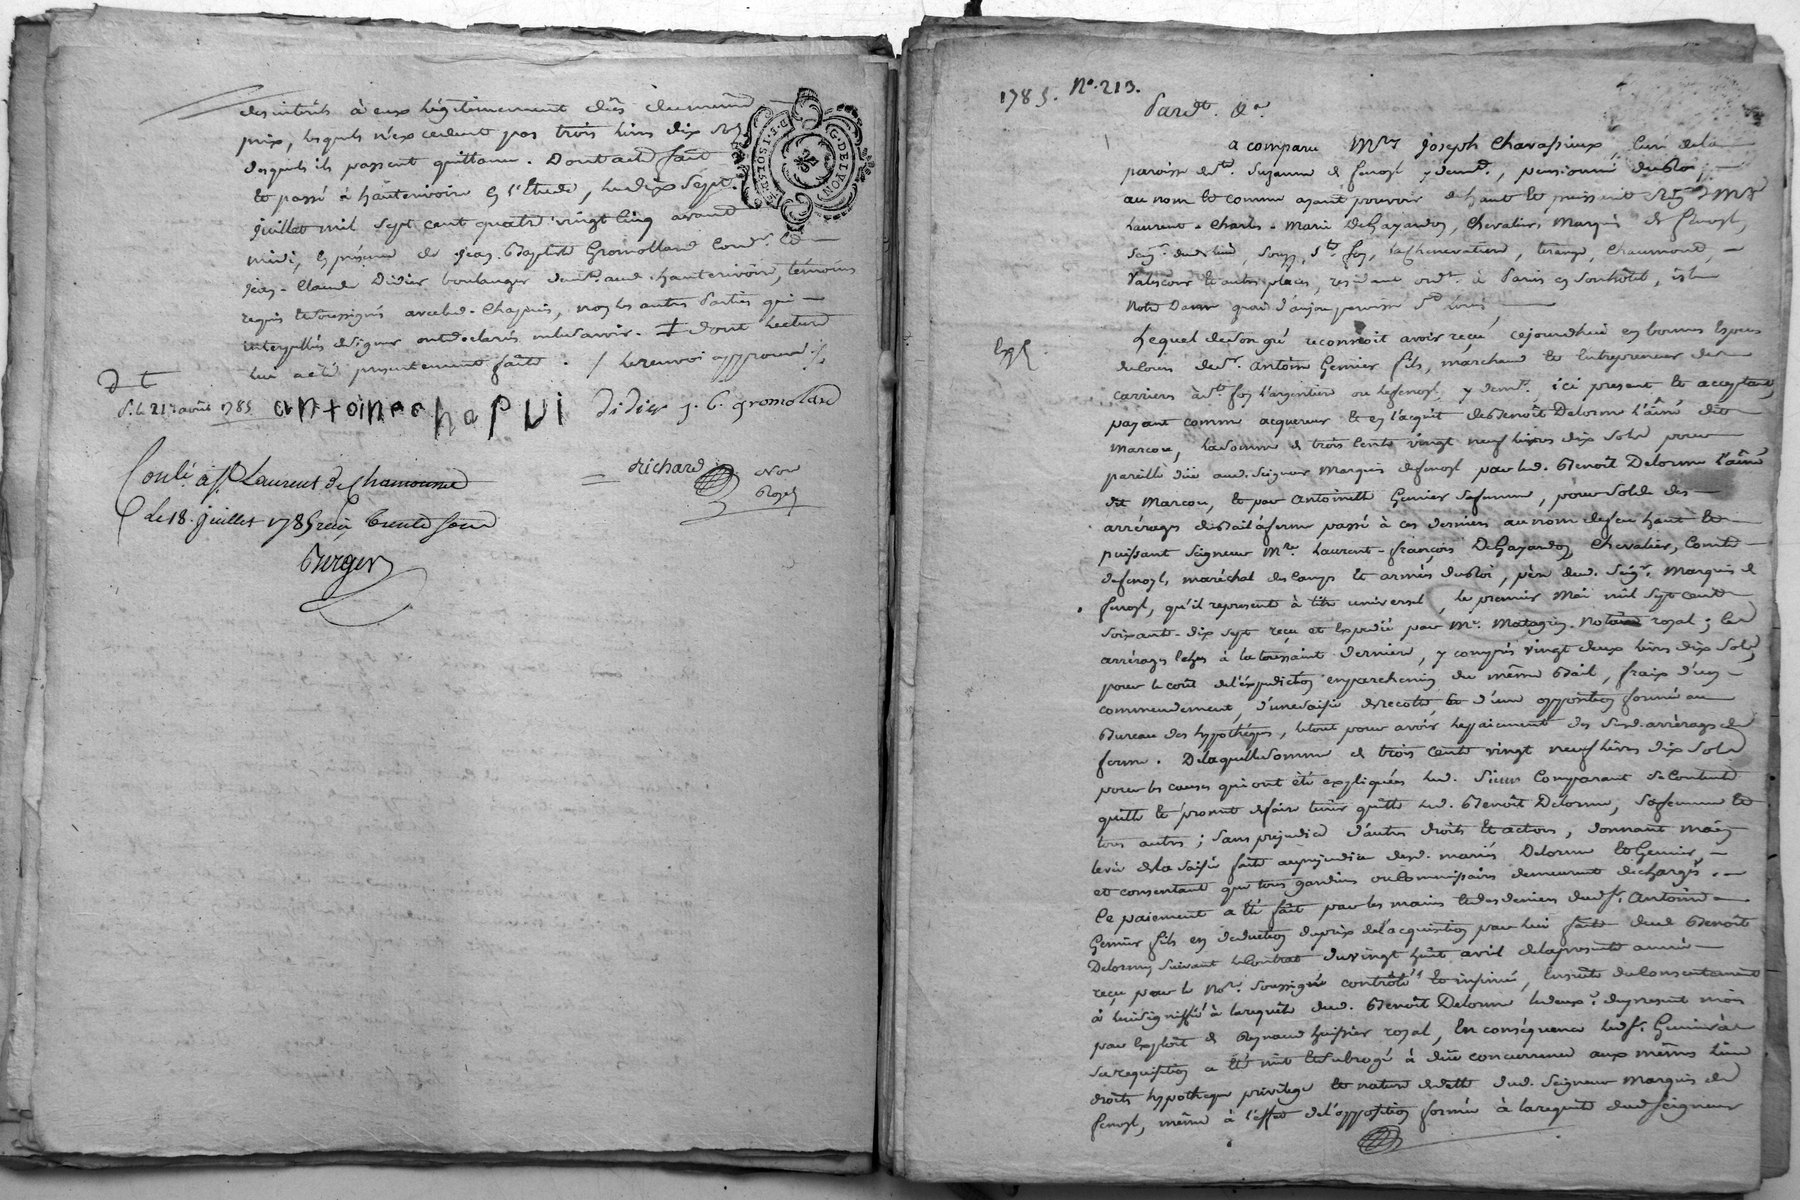 des intérêts à eux légitimement dûs du même
prix, lesquels n'excedent pas trois livres dix sols
desquels ils passent quittance. Dont acte fait
et passé à hauterivoire en l'Etude, le dix sept
juillet mil sept cent quatre vingt cinq avant
midi, en présence de jean-Baptiste Gromolland Cord.r et
jean-Claude Didier boulanger dem.t aud. hauterivoire, témoins
requis et soussignés avec led. Chapuis, non les autres parties qui
interpellées de signer ont déclaré ne le savoir. ‡ dont lecture
lui a été présentement faite. / le renvoi approuvé /.
G. DE LYON
antoine chapui didier j. b. gromolard
d t
S. le 21 août 1785
richard
Not.re
Royal
Conlé à St Laurent de Chamousset
le 18. juillet 1785 reçu trente sous
Berger
1785. N.o 213.
Pard.t &.a
a comparu M.re joseph Chavassieux, Curé de la
paroisse de S.te Suzanne de fenoyl y dem.t, pensionné du Roi;
au nom et comme ayant pouvoir de haut et puissant Seig.r M.re
Laurent-Charles-Marie De Gayardon, Chevalier, Marquis de fenoyl,
Seig.r dud. lieu, Souzy, S.te foy, la Chenevatiere, turange, Chaumont,
Valescour et autres places, résidant ord.t à Paris en son hôtel, isle
Notre Dame quai d'anjou paroisse S.t Louis
Exp.é
Lequel de son gré reconnoit avoir reçu cejourd'hui en bonnes Espèces
du cours de s.r antoine Gemier fils, marchand et Entrepreneur des
carrieres à S.te foy l'argentiere ou de fenoyl y dem.t, ici présent et acceptant,
payant comme acquereur et en l'acquit de Benoit Delorme l'aîné dit
Marcou, la somme de trois cents vingt neuf livres dix sols pour
pareille düe aud. Seigneur Marquis de fenoyl par led. Benoit Delorme l'aîné
dit Marcou, et par antoinette Gemier sa femme, pour solde des
arrérages du Bail à ferme passé à ces derniers au nom de feu haut et
puissant Seigneur M.re Laurent-françois De Gayardon, Chevalier, Comte
de fenoyl, maréchal des camps et armées du Roi, père dud. Seig.r Marquis de
fenoyl, qu'il représente à titre universel, le premier Mai mil sept cent
soixante-dix sept reçu et Expedié par M.e Matagrin Notaire royal; les
arrérages Echus à la toussaint derniere, y compris vingt deux livres dix sols,
pour le coût de l'expédition en parchemin du même Bail, fraix d'un
commendement, d'une saisie de recolte, et d'une opposition formée au
Bureau des hypothéques, le tout pour avoir le paiement des susd. arrérages de
ferme. De laquelle somme de trois cents vingt neuf livres dix sols
pour les causes qui ont été expliquées led. Sieur Comparant se contente
quitte et promet de faire tenir quitte led. Benoit Delorme, sa femme et
tous autres; sans préjudice d'autres droits et actions, donnant main
levée de la saisie faite au préjudice desd. mariés Delorme et Gemier,
et consentant que tous gardiens ou commissaires demeurent déchargés.
Ce paiement a été fait par les mains et des deniers dud. s.r Antoine
Gemier fils en déduction du prix de l'acquisition par lui faite dud. Benoit
Delorme, suivant le Contrat du vingt huit avril de la présente année
reçu par le No.re soussigné contrôlé et insinué, Ensuite du Consentement
à lui signiffié à la requête dud. Benoit Delorme le deux.e du présent mois
par Exploit de Reynaud huissier royal, En conséquence led. s.r Gemier à
sa requisition a été mis et subrogé à düe concurrence aux mêmes lieu
droits hypotheque privilege et nature de dette dud. Seigneur Marquis de
fenoyl, même à l'effet de l'opposition formée à la requête dud. Seigneur